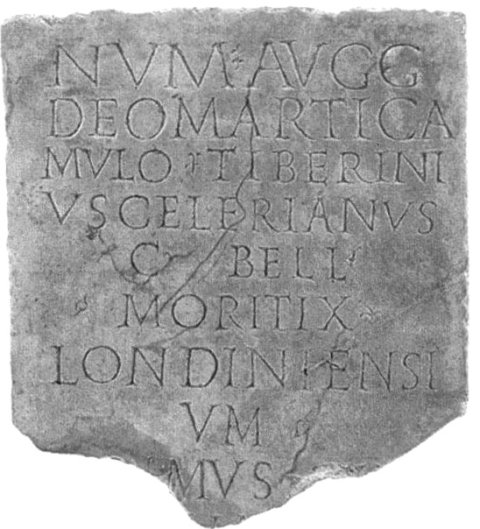 NVM AVGG
DEOMARTICA
MVLO TIBERINI
VSCELERIANVS
C BELL
MORITIX
LONDINIENSI
VM
MVS